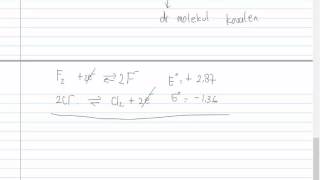 dr molekul kovalen
F₂ + 2e⁻ ⇌ 2F⁻ E° = + 2.87
2Cl⁻ ⇌ Cl₂ + 2e⁻ E° = -1.36